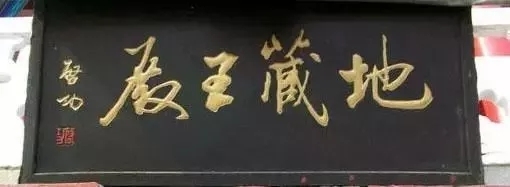 地藏王殿
启功